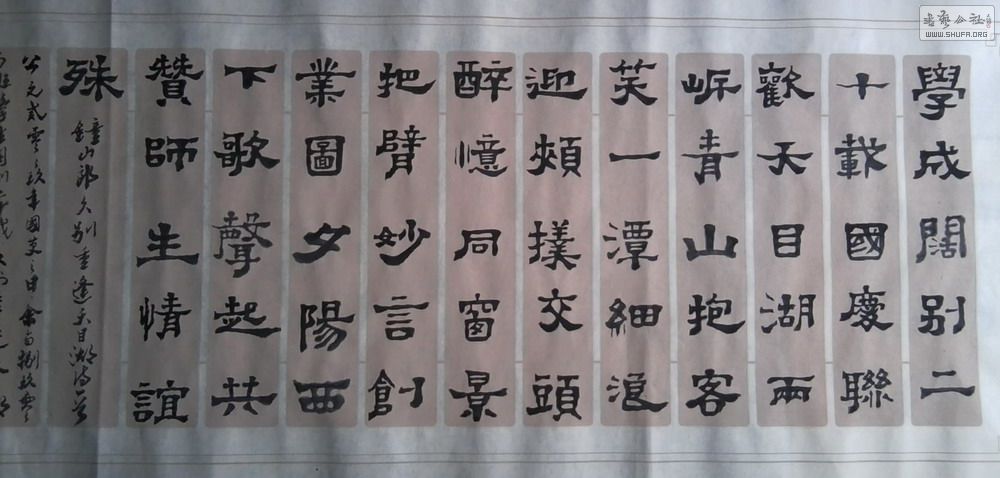 學成闊别二
十載國慶聯
歡天目湖兩
岍青山抱客
笑一潭細浪
迎頰撲交頭
醉憶同窗景
把臂妙言創
業圖夕陽西
下歌聲起共
贊師生情誼
殊
鐘山邨久别重逢天目湖诗一首
公元贰零零玖年國慶之日
书艺公社
WWW.SHUFA.ORG